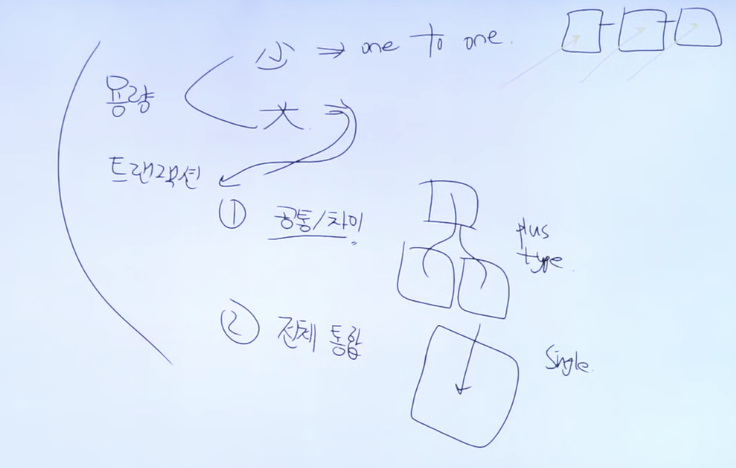 용량
小 ⇒ one to one.
大 ⇒
트랜잭션
① 공통/차이
plus type
② 전체 통합
Single